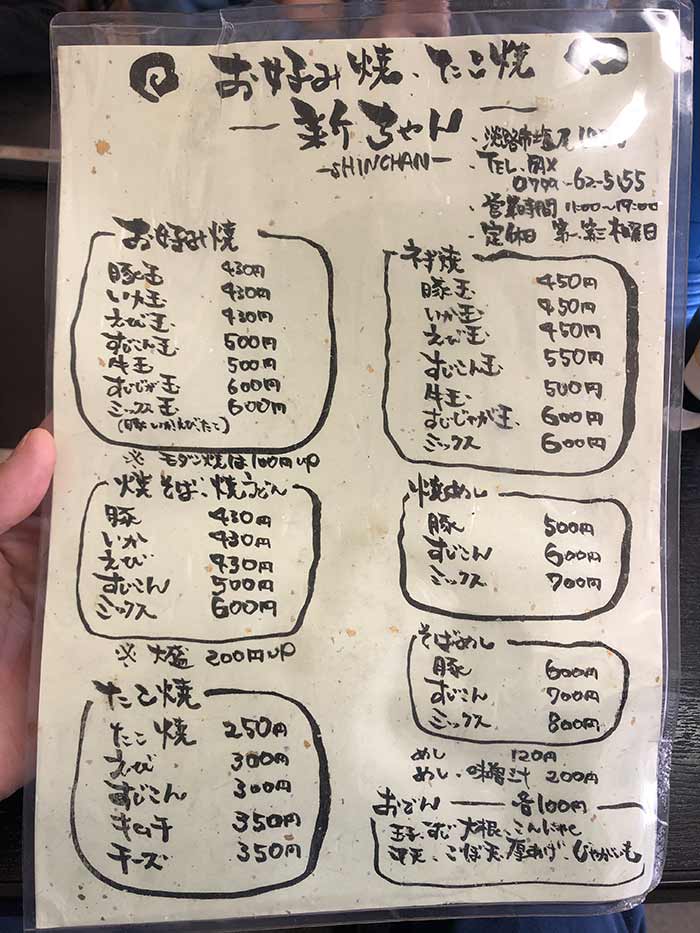 お好み焼、たこ焼
新ちゃん
-SHINCHAN-
・淡路市塩尾
・TEL・FAX
0799-62-5155
・営業時間 11:00~19:00
・定休日 第一、第三木曜日
お好み焼
豚玉 430円
いか玉 430円
えび玉 430円
すじこん玉 500円
牛玉 500円
すじじゃが玉 600円
ミックス玉 600円
(豚いかえびたこ)
※ モダン焼は100円up
焼そば、焼うどん
豚 430円
いか 430円
えび 430円
すじこん 500円
ミックス 600円
※ 大盛 200円up
たこ焼
たこ焼 250円
えび 300円
すじこん 300円
キムチ 350円
チーズ 350円
ネギ焼
豚玉 450円
いか玉 450円
えび玉 450円
すじこん玉 550円
牛玉 500円
すじじゃが玉 600円
ミックス 600円
焼めし
豚 500円
すじこん 600円
ミックス 700円
そばめし
豚 600円
すじこん 700円
ミックス 800円
めし 120円
めし・味噌汁 200円
おでん 各100円
玉子、すじ、大根、こんにゃく
平天、ごぼ天、厚あげ、じゃがいも